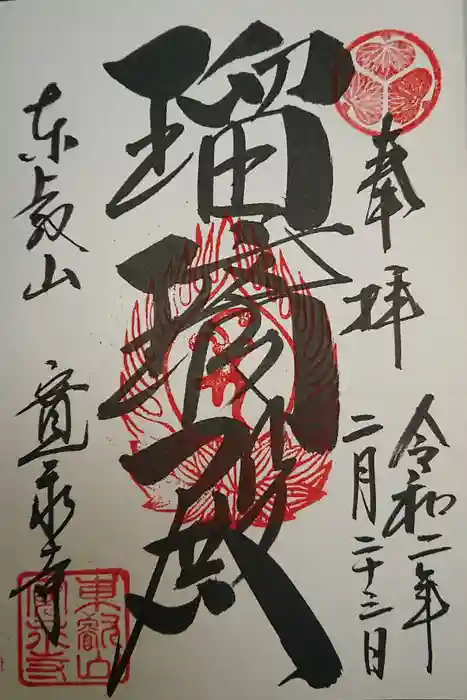 奉拝
令和二年
二月二十三日
瑠璃殿
東叡山
寛永寺
東叡山
寛永寺